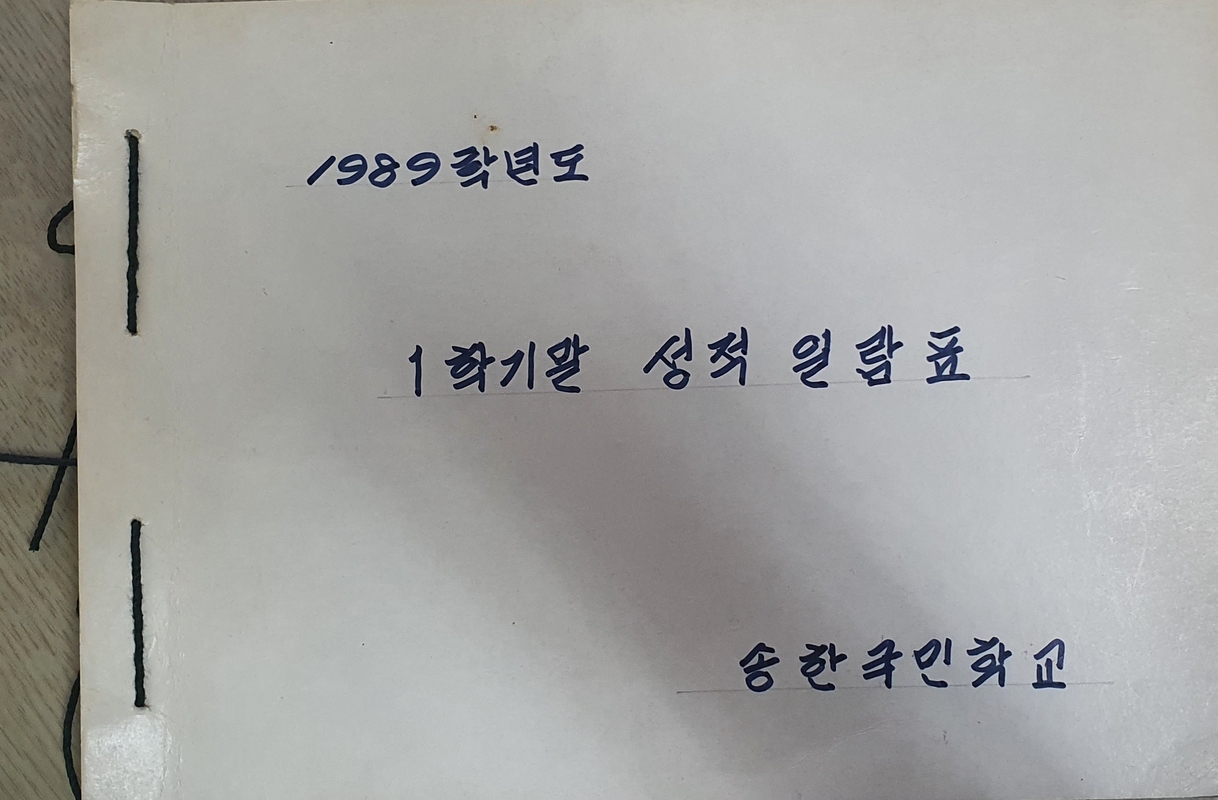 1989학년도
1학기말 성적 일람표
송한국민학교